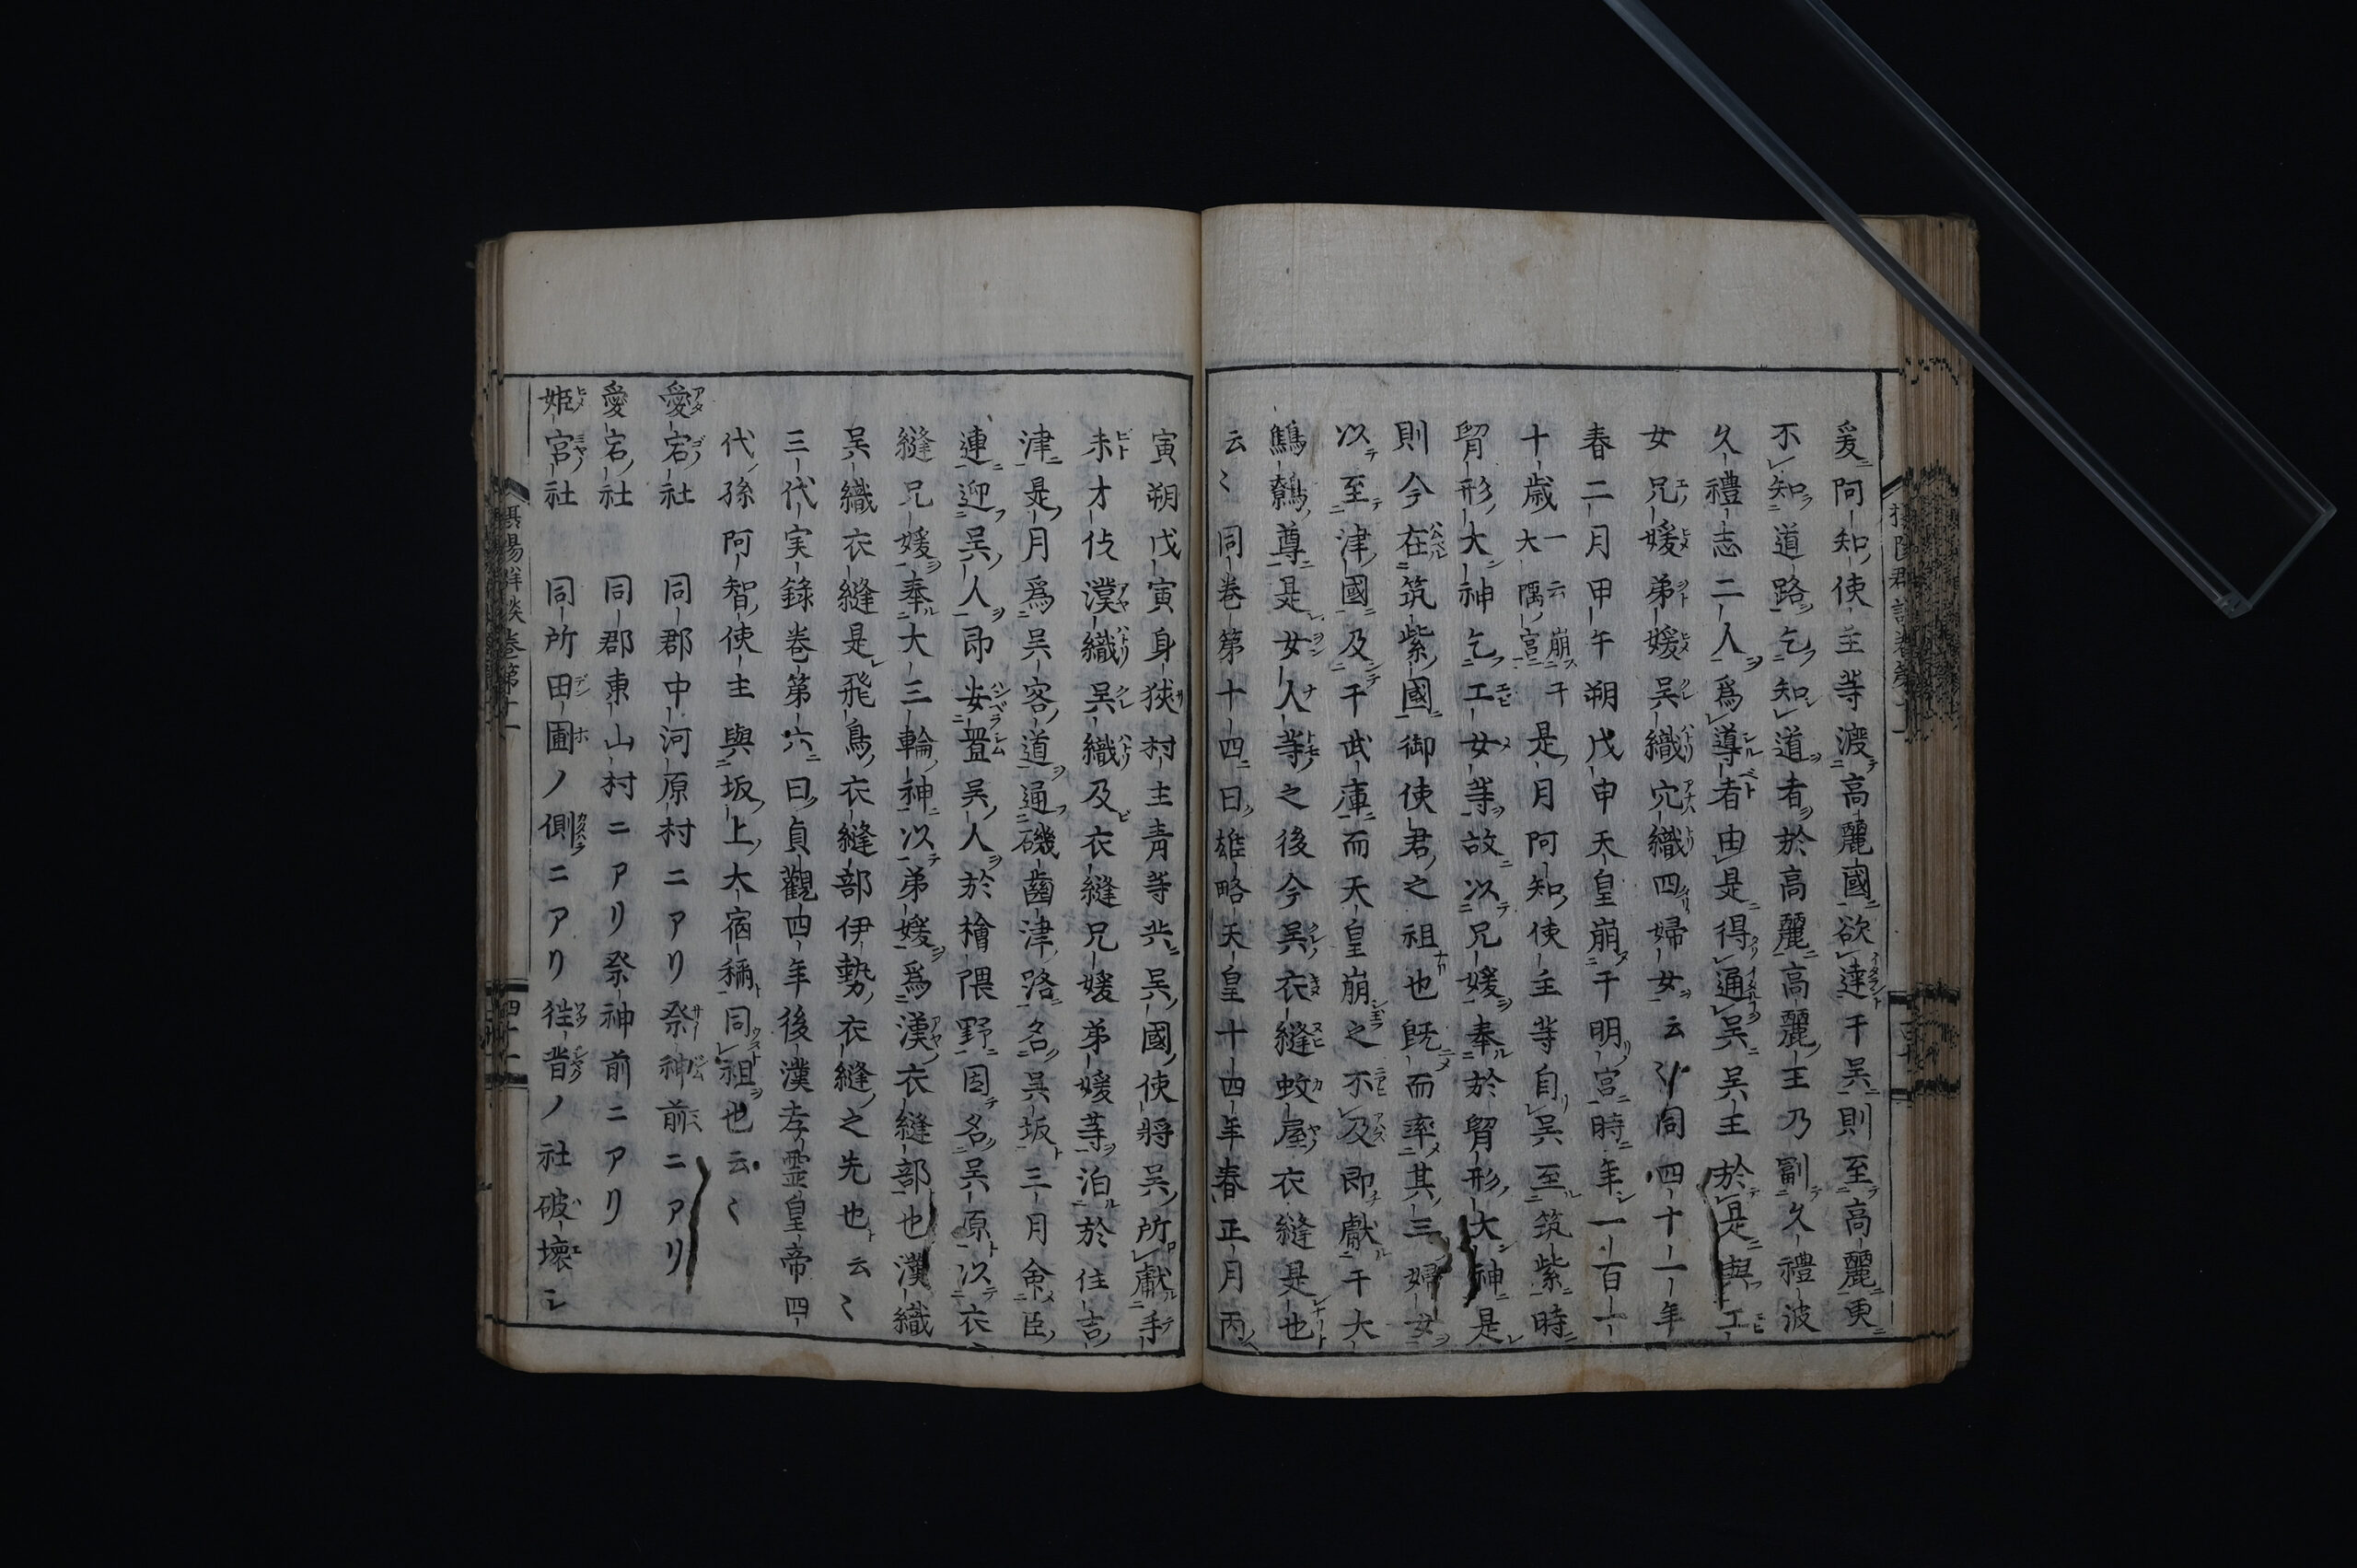 爰阿知使主等渡高麗國欲達于吳則至高麗更
不知道路乞知道者於高麗高麗王乃副久禮波
久禮志二人爲導者由是得通吳吳王於是與工
女兄媛弟媛吳織穴織四婦女云々同四十一年
春二月甲午朔戊申天皇崩于明宮時年一百一
十歲一云崩于大隅宮是月阿知使主等自吳至筑紫時
胷形大神乞工女等故以兄媛奉於胷形大神是
則今在筑紫國御使君之祖也既而率其三婦女
以至津國及于武庫而天皇崩之不及即獻于大
鷦鷯尊是女人等之後今吳衣縫蚊屋衣縫是也
云々同卷第十四曰雄略天皇十四年春正月丙
寅朔戊寅身狹村主青等共吳國使將吳所獻手
末才伎漢織吳織及衣縫兄媛弟媛等泊於住吉
津是月爲吳客道通磯齒津路名吳坂三月命臣
連迎吳人即安置吳人於檜隈野因名吳原以衣
縫兄媛奉大三輪神以弟媛爲漢衣縫部也漢織
吳織衣縫是飛鳥衣縫部伊勢衣縫之先也云々
三代実錄卷第六曰貞觀四年後漢孝靈皇帝四
代孫阿智使主與坂上大宿稱同祖也云々
愛宕社 同郡中河原村ニアリ祭神前ニアリ
愛宕社 同郡東山村ニアリ祭神前ニアリ
姫宮社 同所田圃ノ側ニアリ徃昔ノ社破壞シ
攝陽群談卷第十一
四十二